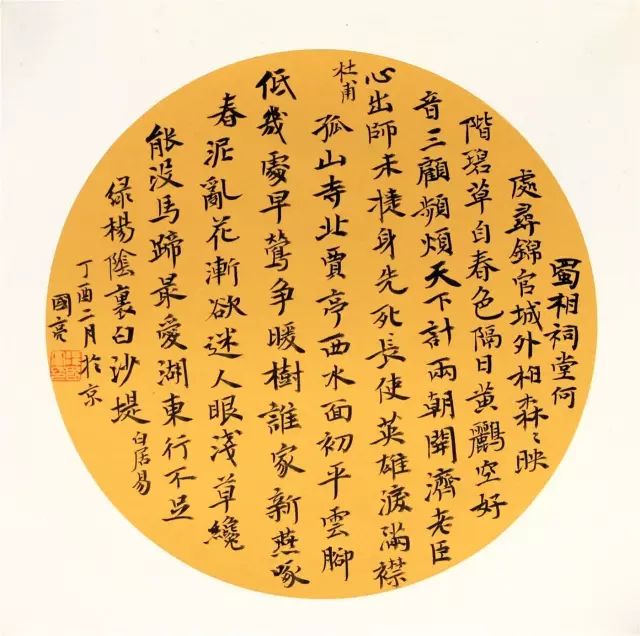 蜀相祠堂何
處尋錦官城外柏森〻映
階碧草自春色隔日黃鸝空好
音三顧頻煩天下計兩朝開濟老臣
心出師未捷身先死長使英雄淚滿襟
杜甫
孤山寺北賈亭西水面初平雲腳
低幾處早鶯爭暖樹誰家新燕啄
春泥亂花漸欲迷人眼淺草纔
能沒馬蹄最愛湖東行不足
綠楊陰裏白沙堤 白居易
丁酉二月於京
國亮